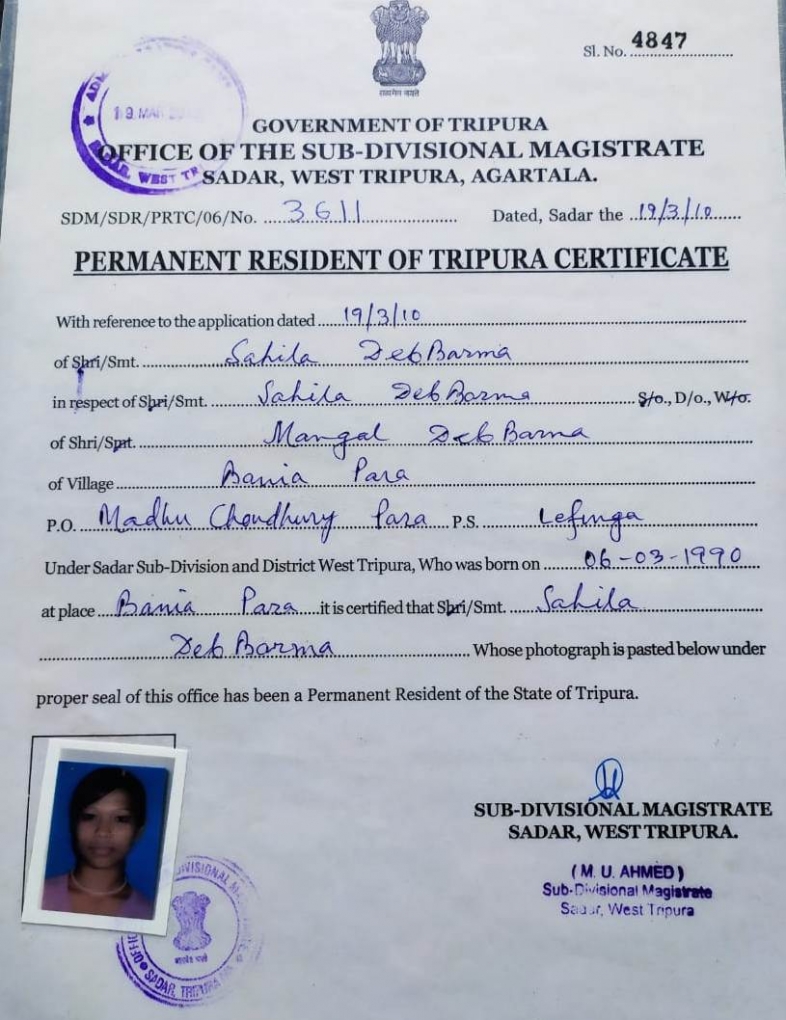 Sl. No. 4847
सत्यमेव जयते
19 MAR
WEST TR
GOVERNMENT OF TRIPURA
OFFICE OF THE SUB-DIVISIONAL MAGISTRATE
SADAR, WEST TRIPURA, AGARTALA.
SDM/SDR/PRTC/06/No. 3611 Dated, Sadar the 19/3/10
PERMANENT RESIDENT OF TRIPURA CERTIFICATE
With reference to the application dated 19/3/10
of Shri/Smt. Sahila DebBarma
in respect of Shri/Smt. Sahila DebBarma S/o., D/o., W/o.
of Shri/Smt. Mangal DebBarma
of Village Bania Para
P.O. Madhu Choudhury Para P.S. Lefunga
Under Sadar Sub-Division and District West Tripura, Who was born on 06-03-1990
at place Bania Para it is certified that Shri/Smt. Sahila
Deb Barma Whose photograph is pasted below under
proper seal of this office has been a Permanent Resident of the State of Tripura.
SUB-DIVISIONAL MAGISTRATE
SADAR, WEST TRIPURA.
( M. U. AHMED )
Sub-Divisional Magistrate
Sadar, West Tripura
SADAR, TRIPURA